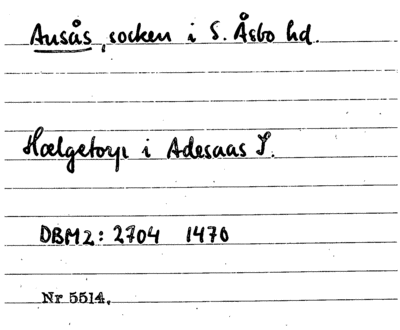 Ausås, socken i S. Åsbo hd.
Hælgetorp i Adesaas S.
DBM2: 2704 1470
Nr 5514.